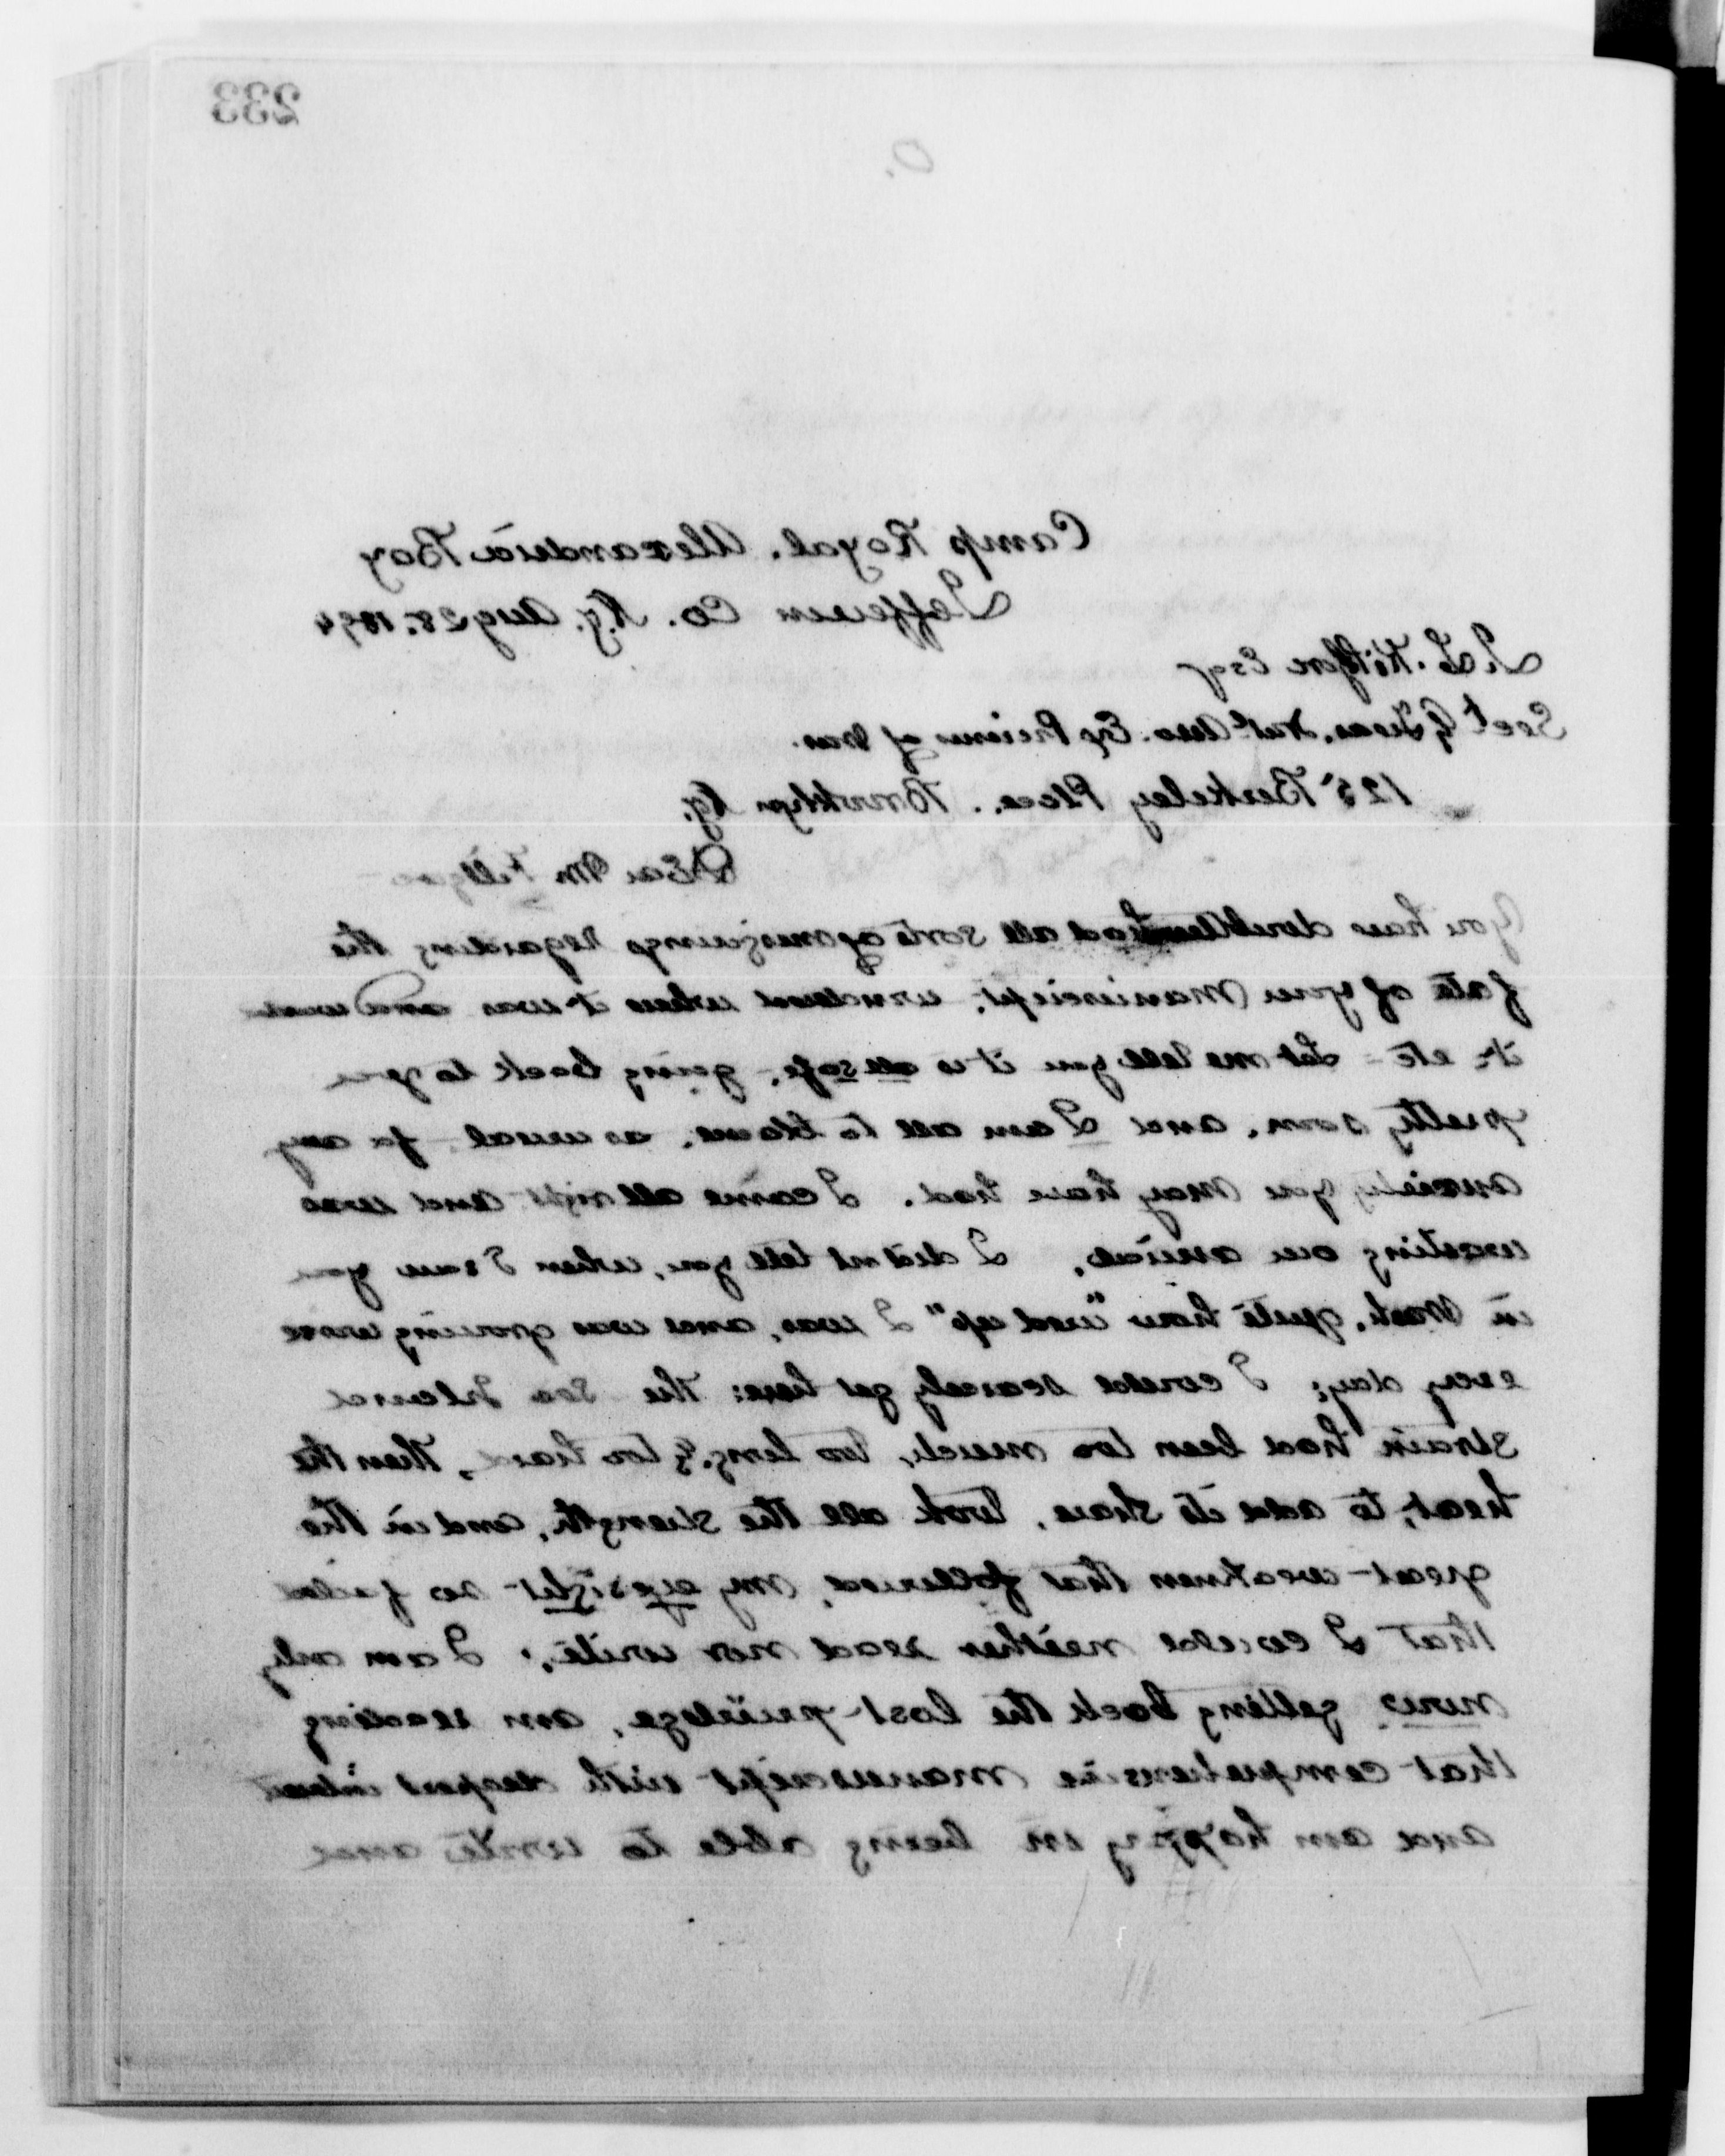 233
Camp Royal. Alexandria Bay
Jefferson Co. N.y. Aug 28. 1894
R L. Kilpatrick Esq
Sect & Treas. Nat. Asso. Ex Prisoners of War.
125 Berkeley Place. Brooklyn N.y.
Dear Mr
You have doubtless had all sorts of misgivings regarding the
fate of your Manuscript, wondered where it was and
etc etc - Let me tell you it is all safe, going back to you
pretty soon, and I am all to blame, as usual, for any
anxiety you may have had. I came all right and was
waiting our I did not tell you, when I saw you
in quite how "used up" I was, and was growing worse
every day; I could scarcely get here: the Sea Island
strain had been too much, too long, & too hard, then the
heat, to add its share, took all the strength, and in the
great weakness that followed, my eyesight so failed
that I could neither read nor write; I am only
now getting back the lost privilege, am reading
that comprehensive manuscript with deepest interest
and am happy in being able to write and